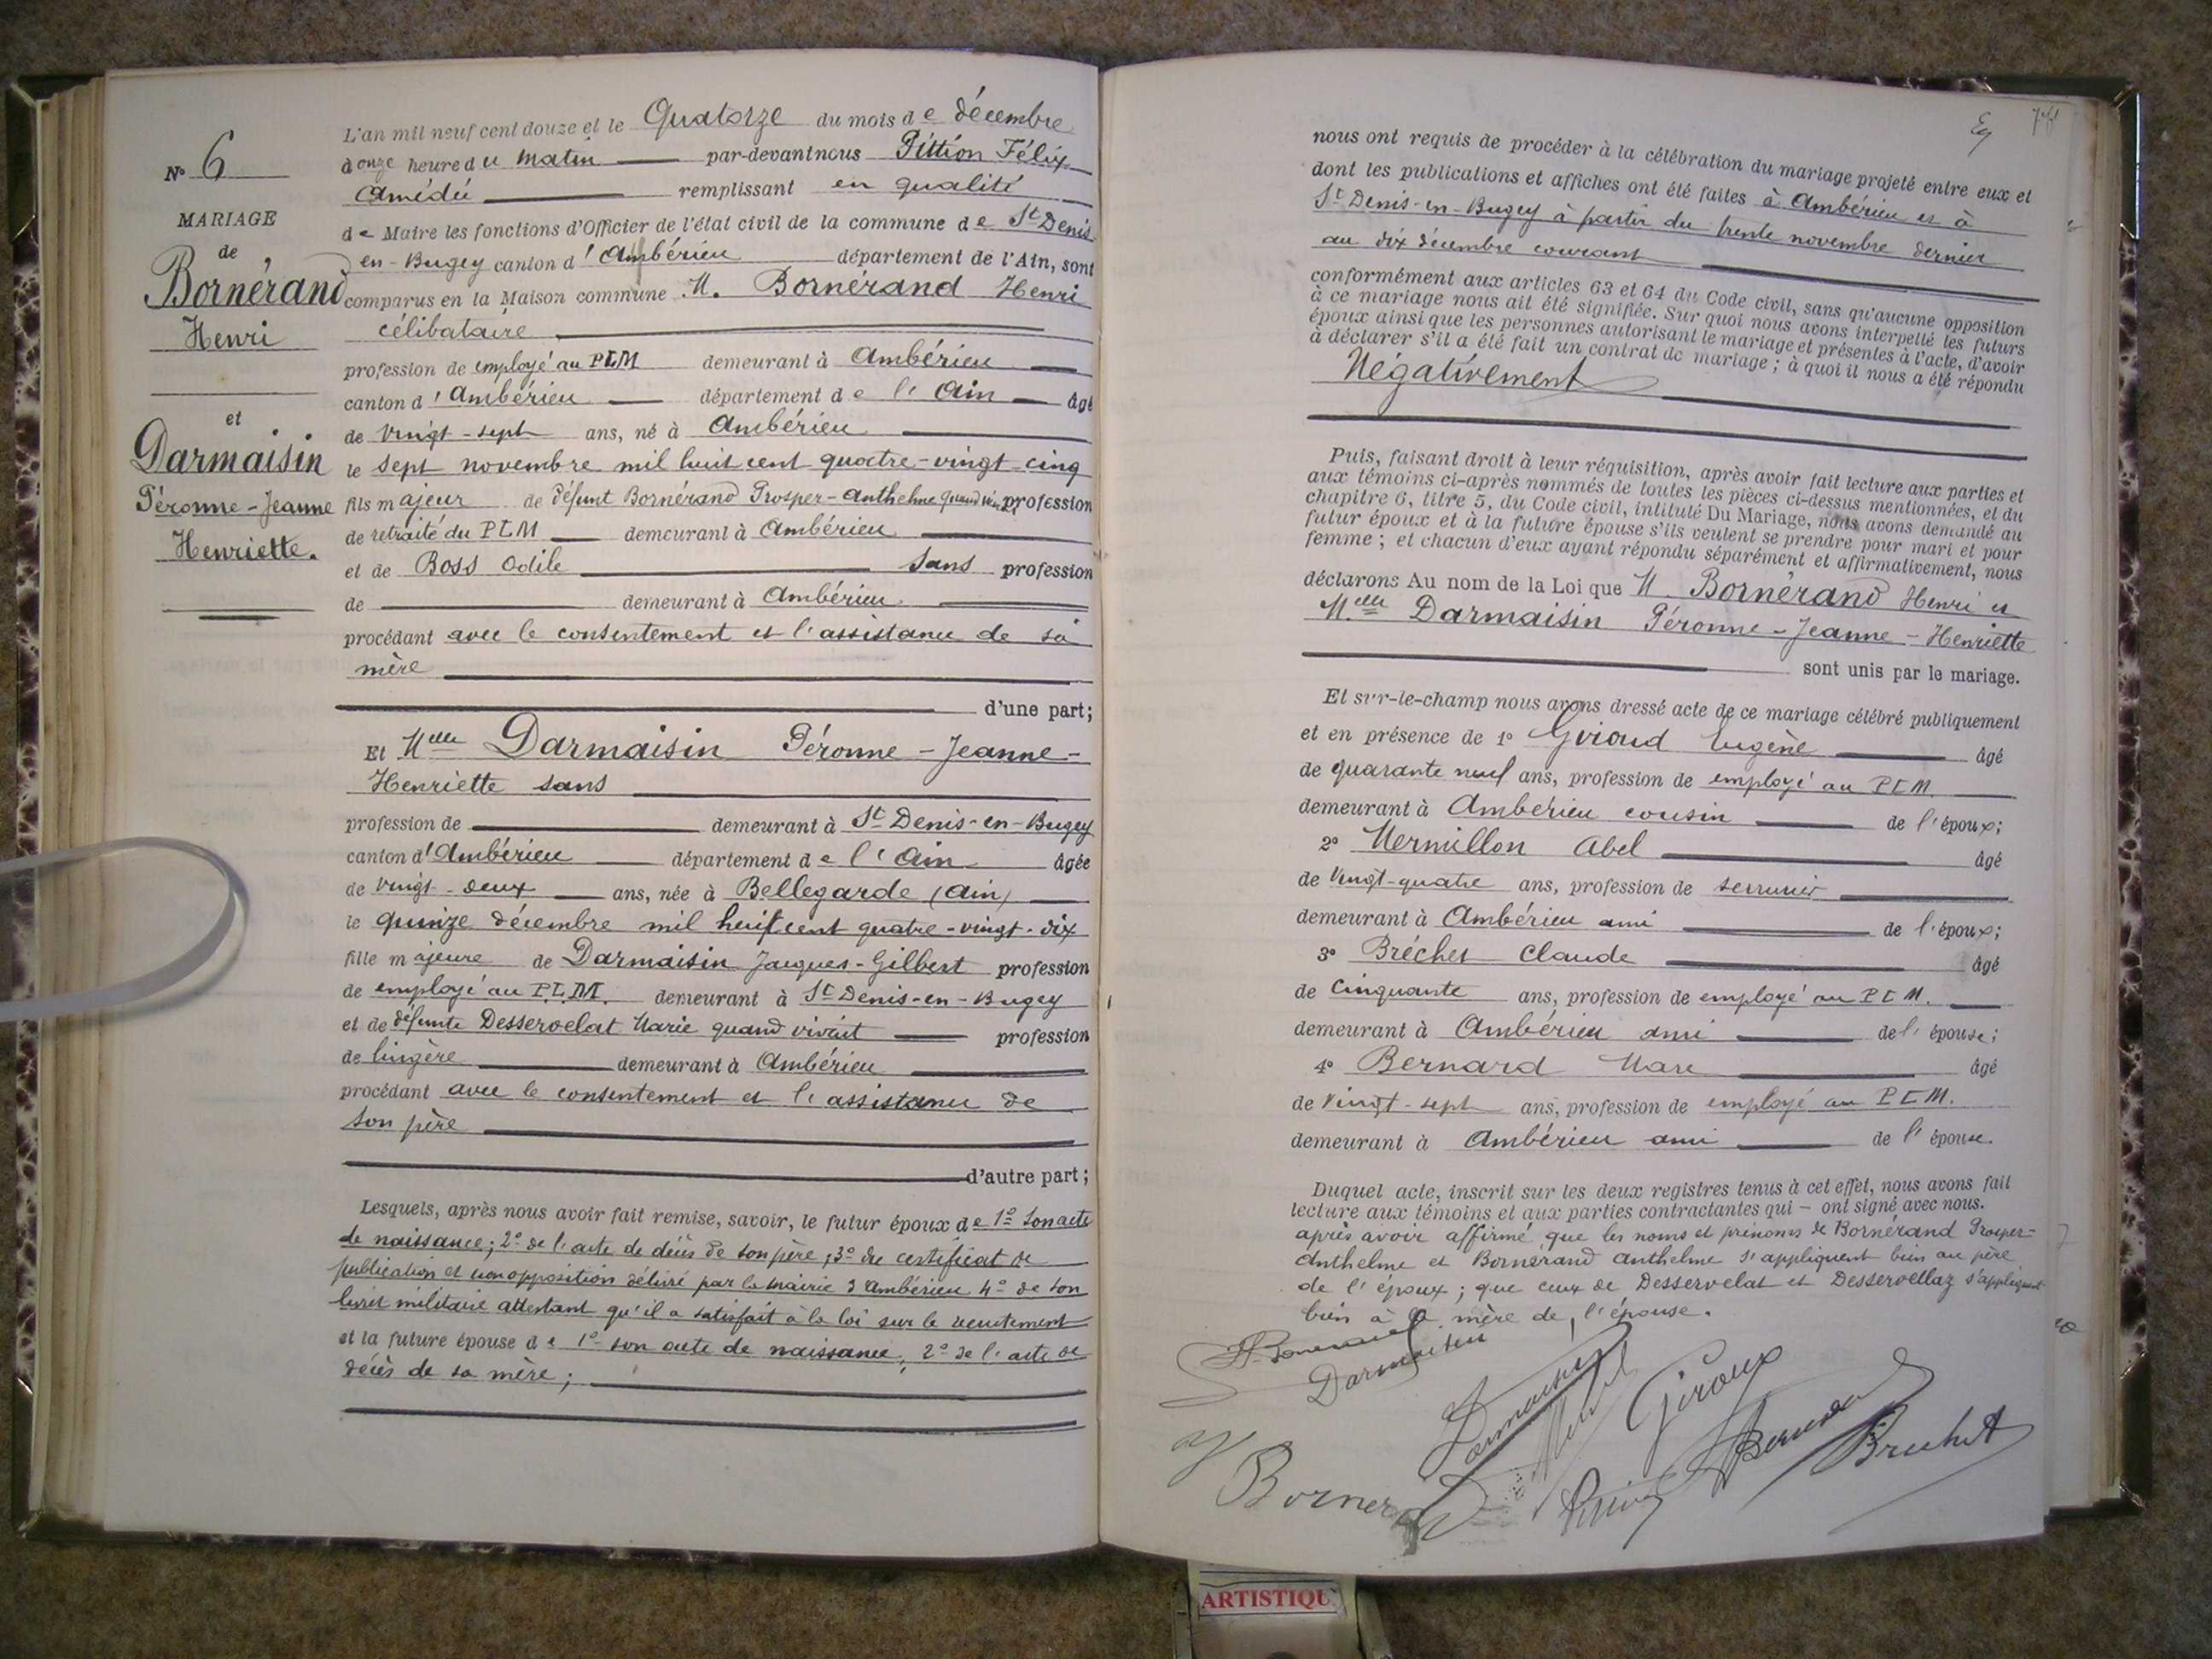 N° 6
MARIAGE
de
Bornérand
Henri
et
Darmaisin
Péronne-Jeanne
Henriette.
L'an mil neuf cent douze et le Quatorze du mois de décembre
à onze heure du matin par-devant nous Pittion Félix
Amédée remplissant en qualité
de Maire les fonctions d'Officier de l'état civil de la commune de St Denis
en-Bugey canton d'Ambérieu département de l'Ain, sont
comparus en la Maison commune M. Bornérand Henri
célibataire
profession de employé au PLM demeurant à Ambérieu
canton d'Ambérieu département de l'Ain âgé
de vingt-sept ans, né à Ambérieu
le sept novembre mil huit cent quatre-vingt cinq
fils majeur de défunt Bornérand Prosper-Anthelme quand viv. profession
de retraité du PLM demeurant à Ambérieu
et de Boss Odile sans profession
de demeurant à Ambérieu
procédant avec le consentement et l'assistance de sa
mère
d'une part;
Et Melle Darmaisin Péronne-Jeanne-
Henriette sans
profession de demeurant à St Denis-en-Bugey
canton d'Ambérieu département de l'Ain âgée
de vingt-deux ans, née à Bellegarde (Ain)
le quinze décembre mil huit cent quatre-vingt-dix
fille majeure de Darmaisin Jacques-Gilbert profession
de employé au P.L.M. demeurant à St Denis-en-Bugey
et de défunte Desservelat Marie quand vivait profession
de lingère demeurant à Ambérieu
procédant avec le consentement et l'assistance de
son père
d'autre part;
Lesquels, après nous avoir fait remise, savoir, le futur époux de 1° son acte
de naissance; 2° de l'acte de décès de son père; 3° du certificat de
publication et non opposition délivré par la mairie d'Ambérieu 4° de son
livret militaire attestant qu'il a satisfait à la loi sur le recrutement
et la future épouse de 1° son acte de naissance, 2° de l'acte de
décès de sa mère;
nous ont requis de procéder à la célébration du mariage projeté entre eux et
dont les publications et affiches ont été faites à Ambérieu et à
St Denis-en-Bugey à partir du trente novembre dernier
au dix décembre courant
conformément aux articles 63 et 64 du Code civil, sans qu'aucune opposition
à ce mariage nous ait été signifiée. Sur quoi nous avons interpellé les futurs
époux ainsi que les personnes autorisant le mariage et présentes à l'acte, d'avoir
à déclarer s'il a été fait un contrat de mariage; à quoi il nous a été répondu
Négativement
Puis, faisant droit à leur réquisition, après avoir fait lecture aux parties et
aux témoins ci-après nommés de toutes les pièces ci-dessus mentionnées, et du
chapitre 6, titre 5, du Code civil, intitulé Du Mariage, nous avons demandé au
futur époux et à la future épouse s'ils veulent se prendre pour mari et pour
femme; et chacun d'eux ayant répondu séparément et affirmativement, nous
déclarons Au nom de la Loi que M. Bornérand Henri et
Melle Darmaisin Péronne-Jeanne-Henriette
sont unis par le mariage.
Et sur-le-champ nous avons dressé acte de ce mariage célébré publiquement
et en présence de 1° Giroud Eugène âgé
de quarante neuf ans, profession de employé au PLM.
demeurant à Ambérieu cousin de l'époux;
2° Mermillon Abel âgé
de vingt-quatre ans, profession de serrurier
demeurant à Ambérieu ami de l'époux;
3° Bréchet Claude âgé
de cinquante ans, profession de employé au PLM.
demeurant à Ambérieu ami de l'épouse;
4° Bernard Marc âgé
de vingt-sept ans, profession de employé au PLM.
demeurant à Ambérieu ami de l'épouse.
Duquel acte, inscrit sur les deux registres tenus à cet effet, nous avons fait
lecture aux témoins et aux parties contractantes qui – ont signé avec nous.
après avoir affirmé que les noms et prénoms de Bornérand Prosper-
Anthelme et Bornérand Anthelme s'appliquent bien au père
de l'époux; que ceux de Desservelat et Desservettaz s'appliquent
bien à la mère de l'épouse.
Darmaisin
Darmaisin
Giroud
Bernard
Brechet
ARTISTIQU